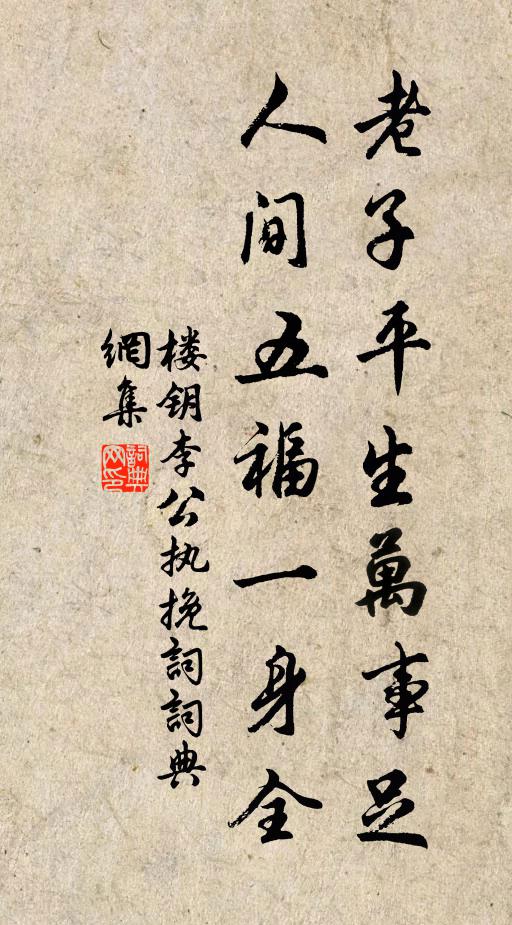 老子平生萬事足
人间五福一身全
楼钥李公执挽詞詞典
網集
詞典
网印